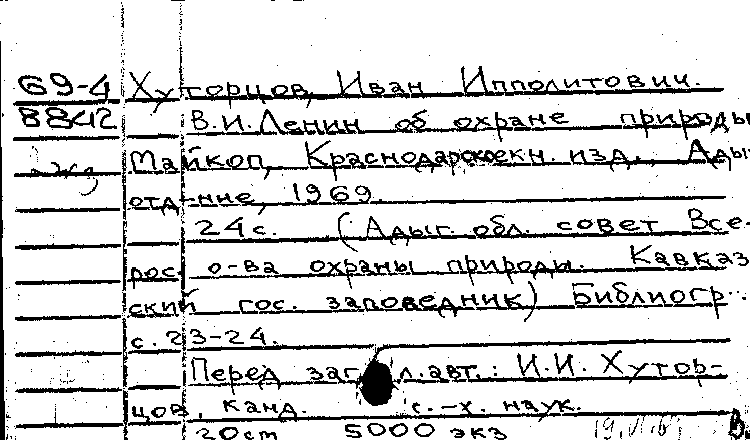 69-4 Хуторцов, Иван Ипполитович.
8842 В.И. Ленин об охране природы
2жз Майкоп, Краснодарское кн. изд., Ады
отд-ние, 1969.
24 с. (Адыг. обл. совет Все-
рос. о-ва охраны природы. Кавказ
ский гос. заповедник) Библиогр.:
с. 23-24.
Перед загл. авт.: И.И. Хутор-
цов, канд. с.-х. наук.
20 см 5000 экз